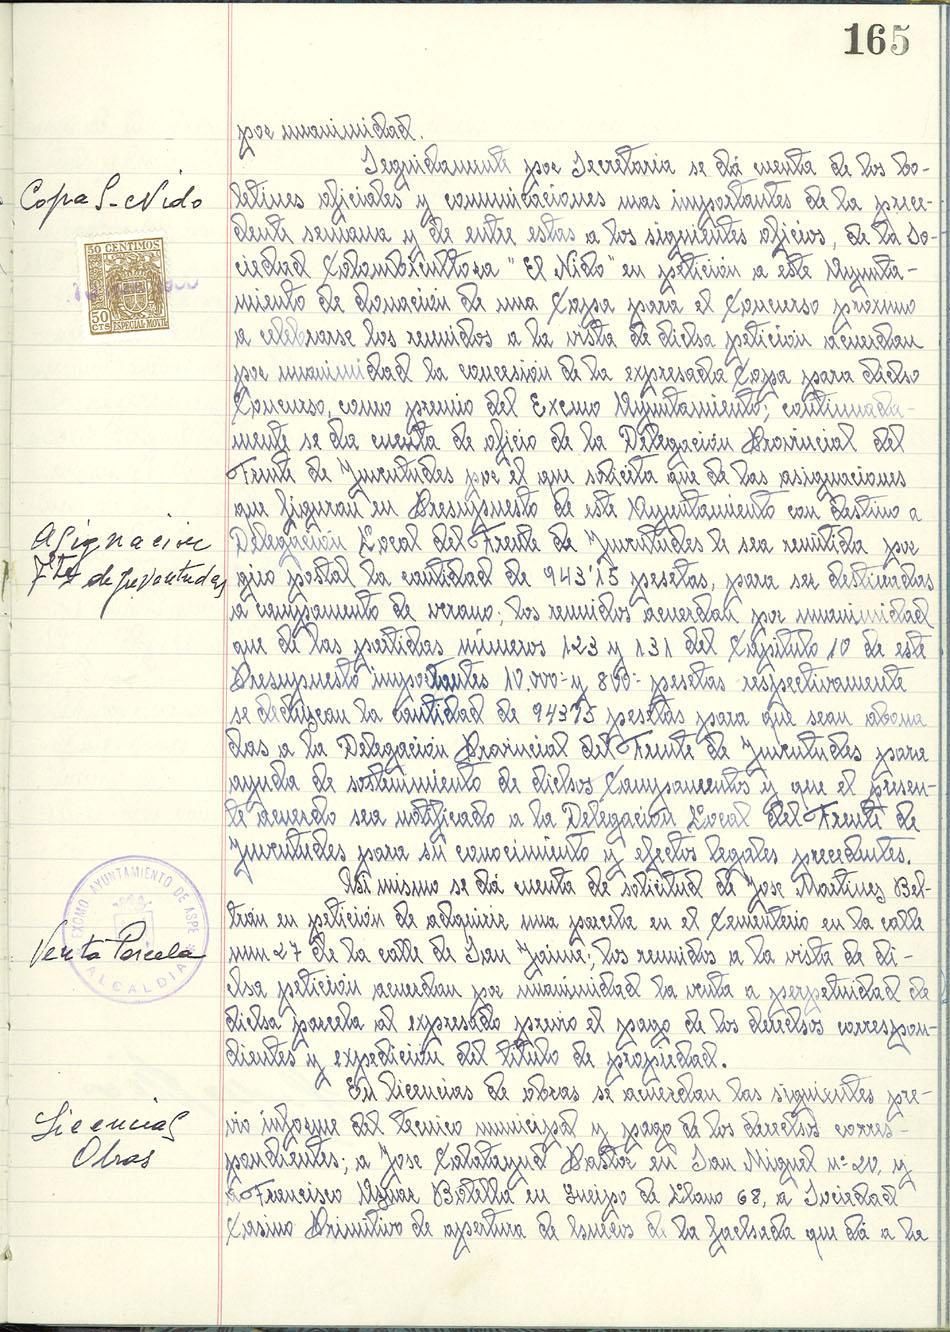 165
por unanimidad.
Seguidamente por Secretaria se dá cuenta de los bo-
Copa S-Nido
letines oficiales y comunicaciones mas importantes de la prece-
dente semana y de entre estas a los siguientes oficios, de la So-
ciedad Colombicultora "El Nido" en petición a este Ayunta-
50 CENTIMOS
50 CTS ESPECIAL MOVIL
miento de donación de una Copa para el Concurso próximo
a celebrarse los reunidos a la vista de dicha petición acuerdan
por unanimidad la concesión de la expresada Copa para dicho
Concurso, como premio del Excmo Ayuntamiento; continuada-
mente se da cuenta de oficio de la Delegación Provincial del
Frente de Juventudes por el que solicita que de las asignaciones
que figuran en Presupuesto de este Ayuntamiento con destino a
Asignación
Delegación Local del Frente de Juventudes le sea remitida por
Fte de Juventudes
giro postal la cantidad de 943'15 pesetas, para ser destinadas
a campamento de verano; los reunidos acuerdan por unanimidad
que de las partidas números 123 y 131 del Capitulo 10 de este
Presupuesto importantes 10.000- y 800- pesetas respectivamente
se deduzcan la cantidad de 943'15 pesetas para que sean abona
das a la Delegación Provincial del Frente de Juventudes para
ayuda de sostenimiento de dichos Campamentos y que el presen-
te acuerdo sea notificado a la Delegación Local del Frente de
Juventudes para su conocimiento y efectos legales procedentes.
Asi mismo se dá cuenta de solicitud de Jose Martinez Bel-
EXCMO AYUNTAMIENTO DE ASPE
ALCALDIA
trán en petición de adquirir una parcela en el Cementerio en la calle
Venta Parcela
num 27 de la calle de San Jaime; los reunidos a la vista de di-
cha petición acuerdan por unanimidad la venta a perpetuidad de
dicha parcela al expresado previo el pago de los derechos correspon-
dientes y expedición del titulo de propiedad.
En licencias de obras se acuerdan las siguientes pre-
Licencias
vio informe del tecnico municipal y pago de los derechos corres-
Obras
pondientes; a Jose Calatayud Pastor en San Miguel nº 20, y
a Francisco Aznar Botella en Queipo de Llano 68, a Sociedad
Casino Primitivo de apertura de huecos de la fachada que dá a la